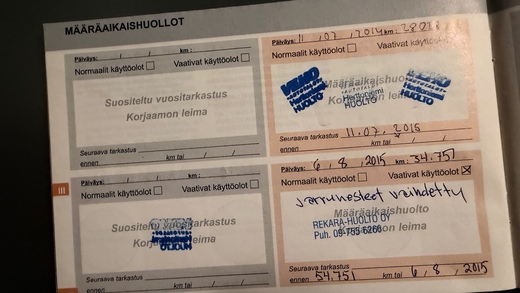 MÄÄRÄAIKAISHUOLLOT
Päiväys: / / km:
Normaalit käyttöolot Vaativat käyttöolot
Suositeltu vuositarkastus
Korjaamon leima
Seuraava tarkastus
ennen km tai / /
Päiväys: 11, 07, 2014 km:
Normaalit käyttöolot Vaativat käyttöolot
Määräaikaishuolto
VEHO
Herttoniemi
HUOLTO
Herttoniemi
HUOLTO
Herttoniemi
HUOLTO
Seuraava tarkastus 11.07.2015
ennen km tai
III
Päiväys: / / km:
Normaalit käyttöolot Vaativat käyttöolot
Suositeltu vuositarkastus
Korjaamon leima
Seuraava tarkastus
ennen km tai / /
Päiväys: 6, 8, 2015 km: 34.751
Normaalit käyttöolot Vaativat käyttöolot
Jarrunesteet vaihdettu
Määräaikaishuolto
Korjaamon leima
REKARA-HUOLTO OY
Puh. 09-755 6260
Seuraava tarkastus
ennen 54.751 km tai 6, 8, 2015